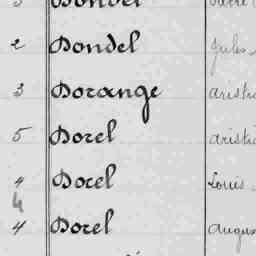 2 Dondel Jules
3 Dorange Aristi
5 Dorel Aristi
4 Dorel Louis
4
4 Dorel Augus